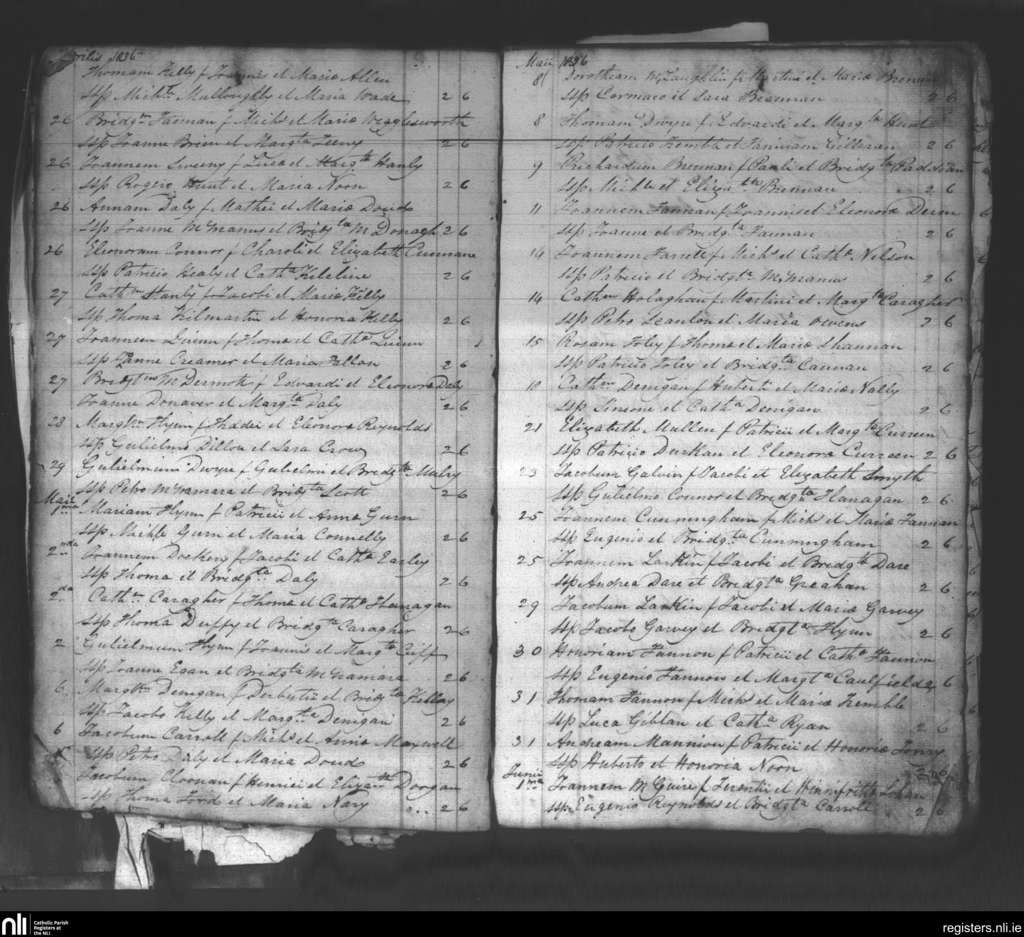 Aprilis 1836
Thomam Kelly f Joannis et Maria Allen
Ssp Michle Mulloughly et Maria Wade 2 6
26 Bridgm Fannan f Michs et Maria Wigglesworth
Ssp Joanne Brien et Margta Feeny 2 6
26 Joannem Sweeny f Luca et Margta Hanly
Ssp Rogerio Hunt et Maria Noon 2 6
26 Annam Daly f Mathei et Maria Doud
Ssp Joanne McManus et Bridgta McDonagh 2 6
26 Eleonoram Connor f Charoli et Elizabeth Cunnane
Ssp Patricio Healy et Catha 2 6
27 Cathm Hanly f Jacobi et Maria Kelly
Ssp Thoma Kilmartin et Honoria Kelly 2 6
27 Joannem Quinn f Thoma et Catha Quinn
Ssp Joanne Creamer et Maria Fallon 2 6
27 Bridgtm McDermott f Edwardi et Eleonora Daly
Joanne Donaver et Margta Daly 2 6
28 Margtm Flynn f Thadei et Eleonora Reynolds
Ssp Gulielmo Dillon et Sara Crow 2 6
29 Gulielmum Dwyn f Gulielmi et Bridgta
Ssp Petro McNamara et Bridgta Scott 2 6
Maii 1ma Mariam Flynn f Patricii et Anna Gunn
Ssp Michle Gunn et Maria Connelly 2 6
2nda Joannem Dockery f Jacobi et Catha Earley
Ssp Thoma et Bridgta Daly 2 6
2da Cathm Caragher f Thoma et Catha Flanagan
Ssp Thoma Duffy et Bridgta Caragher 2 6
2 Gulielmum Flynn f Joannis et Margta
Ssp Joanne Egan et Bridgta McNamara 2 6
6 Margtm Denigan f et Bridgta Kelloy
Ssp Jacobo Kelly et Margta Denigan 2 6
6 Jacobum Carroll f Michs et Annis Maxwell
Ssp Petro Daly et Maria Doud 2 6
Jacobum Cloonan f Henrici et Elizath Doogan
Ssp Thoma Ford et Maria Nary 2 6
Maii 1836
8 Dorotheam McLaughlin f et Maria Brenan
Ssp Cormaco et Sara Brennan 2 6
8 Thomam Dwyne f Edvardi et Margta Hunt
Ssp Patricio Kemble et Gilleran 2 6
9 Richardum Brennan f Pauli et Bridgta Paddian
Ssp Michle et Elizata Brennan 2 6
11 Joannem Fannan f Joannis et Eleonora
Ssp Joanne et Bridgta Fannan 2 6
14 Joannem f Michs et Catha Nelson
Ssp Patricio et Bridgta McManus 2 6
14 Cathm Holaghan f Martini et Margta Caragher
Ssp Petro Scanlon et Maria Owens 2 6
15 Rosam Foley f Thoma et Maria Shannan
Ssp Patricio Foley et Bridgta Cannan 2 6
Cathm Denigan f Huberti et Maria Nally
Ssp Simone et Catha Denigan 2 6
21 Elizabeth Mullen f Patricii et Margta Curreen
Ssp Patricio Durkan et Eleonora Curreen 2 6
23 Jacobum Galvin f Jacobi et Elizabeth Smyth
Ssp Gulielmo Connor et Bridgta Flanagan 2 6
25 Joannem Cunningham f Michs et Maria Fannan
Ssp Eugenio et Bridgta Cunningham 2 6
25 Joannem Larkin f Jacobi et Bridgta Dare
Ssp Andrea Dare et Bridgta Greahan 2 6
29 Jacobum Larkin f Jacobi et Maria Garvey
Ssp Jacobo Garvey et Bridgta Flynn 2 6
30 Honoriam Fannon f Patricii et Catha Fannon
Ssp Eugenio Fannon et Margta Caulfield 2 6
31 Thomam Fannon f Michs et Maria Kemble
Ssp Luca Giblan et Catha Ryan 2 6
31 Andream Mannion f Patricii et Honoria
Ssp Huberto et Honoria Noon
Junii 1ma Joannem McGuire f et
Ssp Eugenio Reynolds et Bridgta Carroll 2 6
nli
Catholic Parish Registers at the NLI
registers.nli.ie